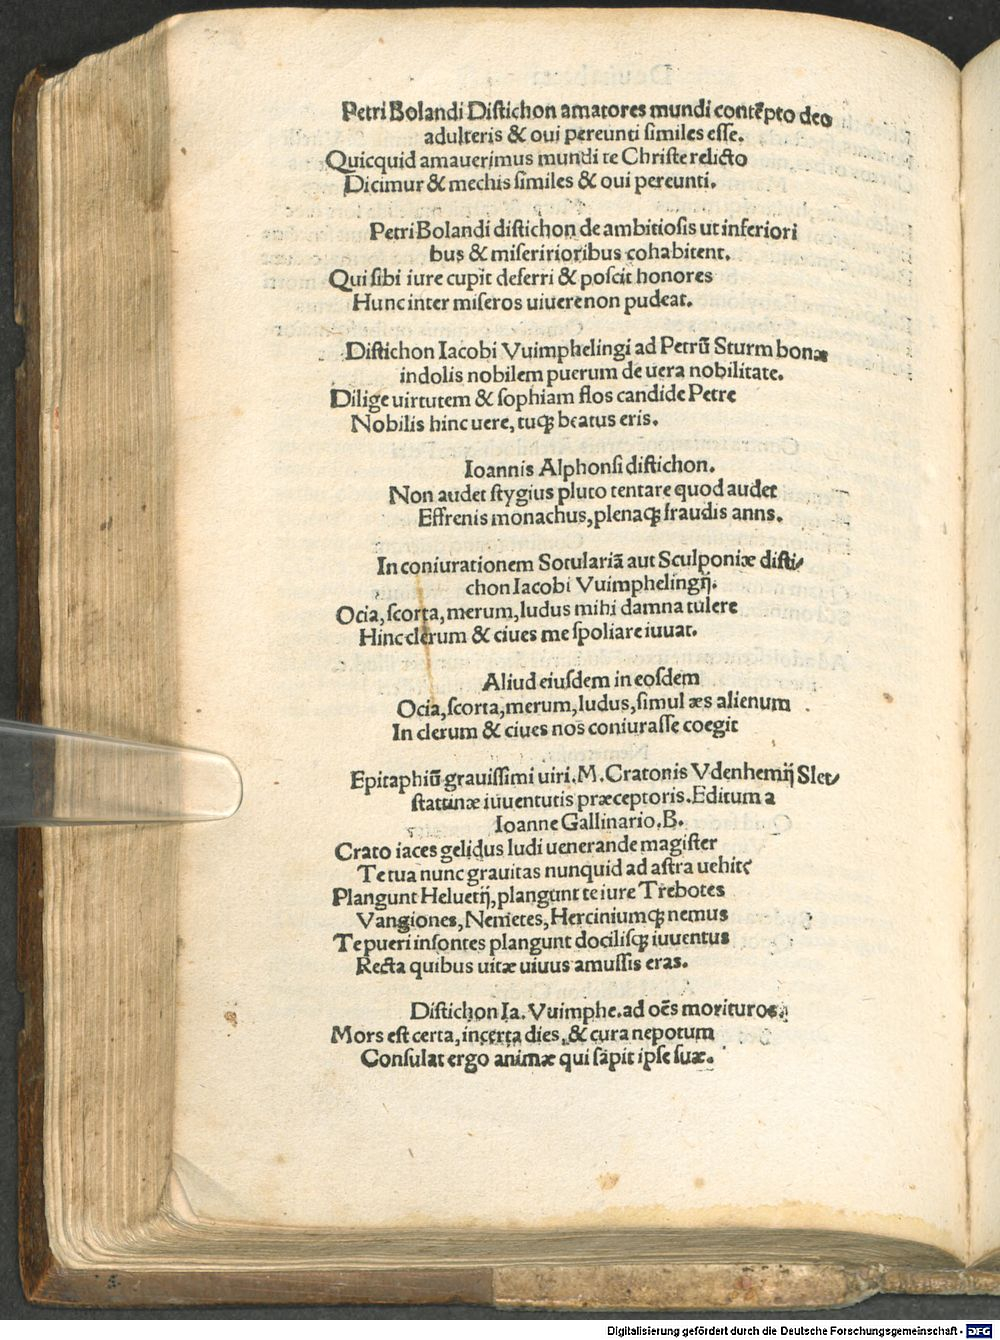 Petri Bolandi Distichon amatores mundi contẽpto deo
adulteris & oui pereunti similes esse.
Quicquid amauerimus mundi te Christe relicto
Dicimur & mechis similes & oui pereunti.
Petri Bolandi distichon de ambitiosis ut inferiori
bus & miseririoribus cohabitent.
Qui sibi iure cupit deferri & poscit honores
Hunc inter miseros uiuere non pudeat.
Distichon Iacobi Vuimphelingi ad Petrũ Sturm bonæ
indolis nobilem puerum de uera nobilitate.
Dilige uirtutem & sophiam flos candide Petre
Nobilis hinc uere, tuqꝫ beatus eris.
Ioannis Alphonsi distichon.
Non audet stygius pluto tentare quod audet
Effrenis monachus, plenaqꝫ fraudis anns.
In coniurationem Sotulariã aut Sculponiæ disti⸗
chon Iacobi Vuimphelingij.
Ocia, scorta, merum, ludus mihi damna tulere
Hinc clerum & ciues me spoliare iuuat.
Aliud eiusdem in eosdem
Ocia, scorta, merum, ludus, simul æs alienum
In clerum & ciues nos coniurasse coegit
Epitaphiũ grauissimi uiri. M. Cratonis Vdenhemij Slet⸗
stattinæ iuuentutis præceptoris. Editum a
Ioanne Gallinario. B.
Crato iaces gelidus ludi uenerande magister
Te tua nunc grauitas nunquid ad astra uehit
Plangunt Heluetij, plangunt te iure Trebotes
Vangiones, Nemetes, Herciniumqꝫ nemus
Te pueri insontes plangunt docilisqꝫ iuuentus
Recta quibus uitæ uiuus amussis eras.
Distichon Ia. Vuimphe. ad oẽs morituros.
Mors est certa, incerta dies, & cura nepotum
Consulat ergo animæ qui sapit ipse suæ.
Digitalisierung gefördert durch die Deutsche Forschungsgemeinschaft - DFG